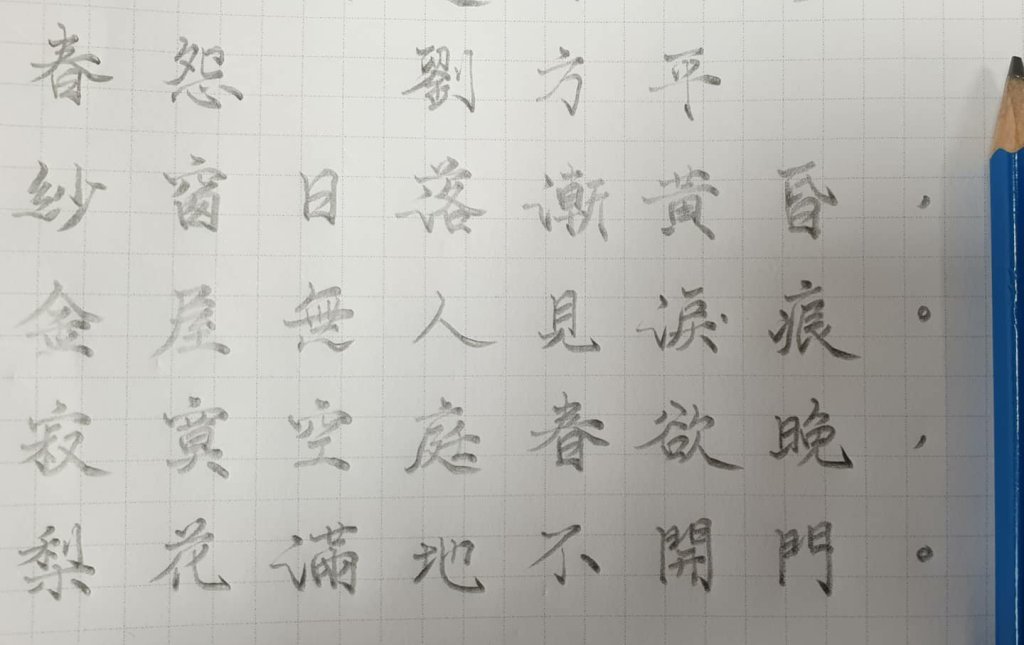 春怨　劉方平
紗窗日落漸黃昏，
金屋無人見淚痕。
寂寞空庭春欲晚，
梨花滿地不開門。